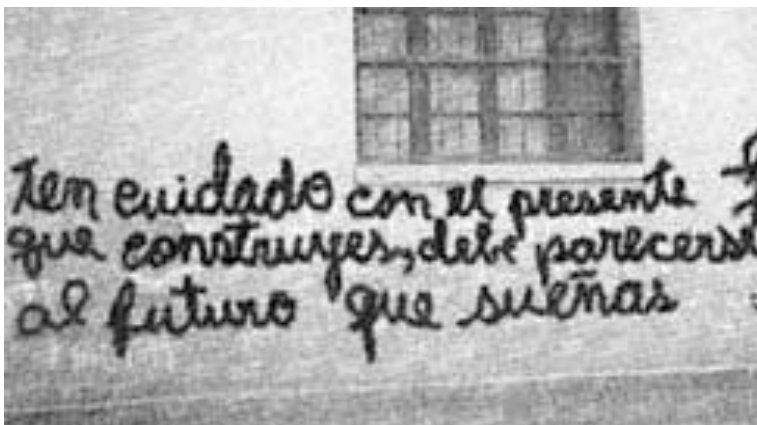 ten cuidado con el presente
que construyes, debe parecerse
al futuro que sueñas